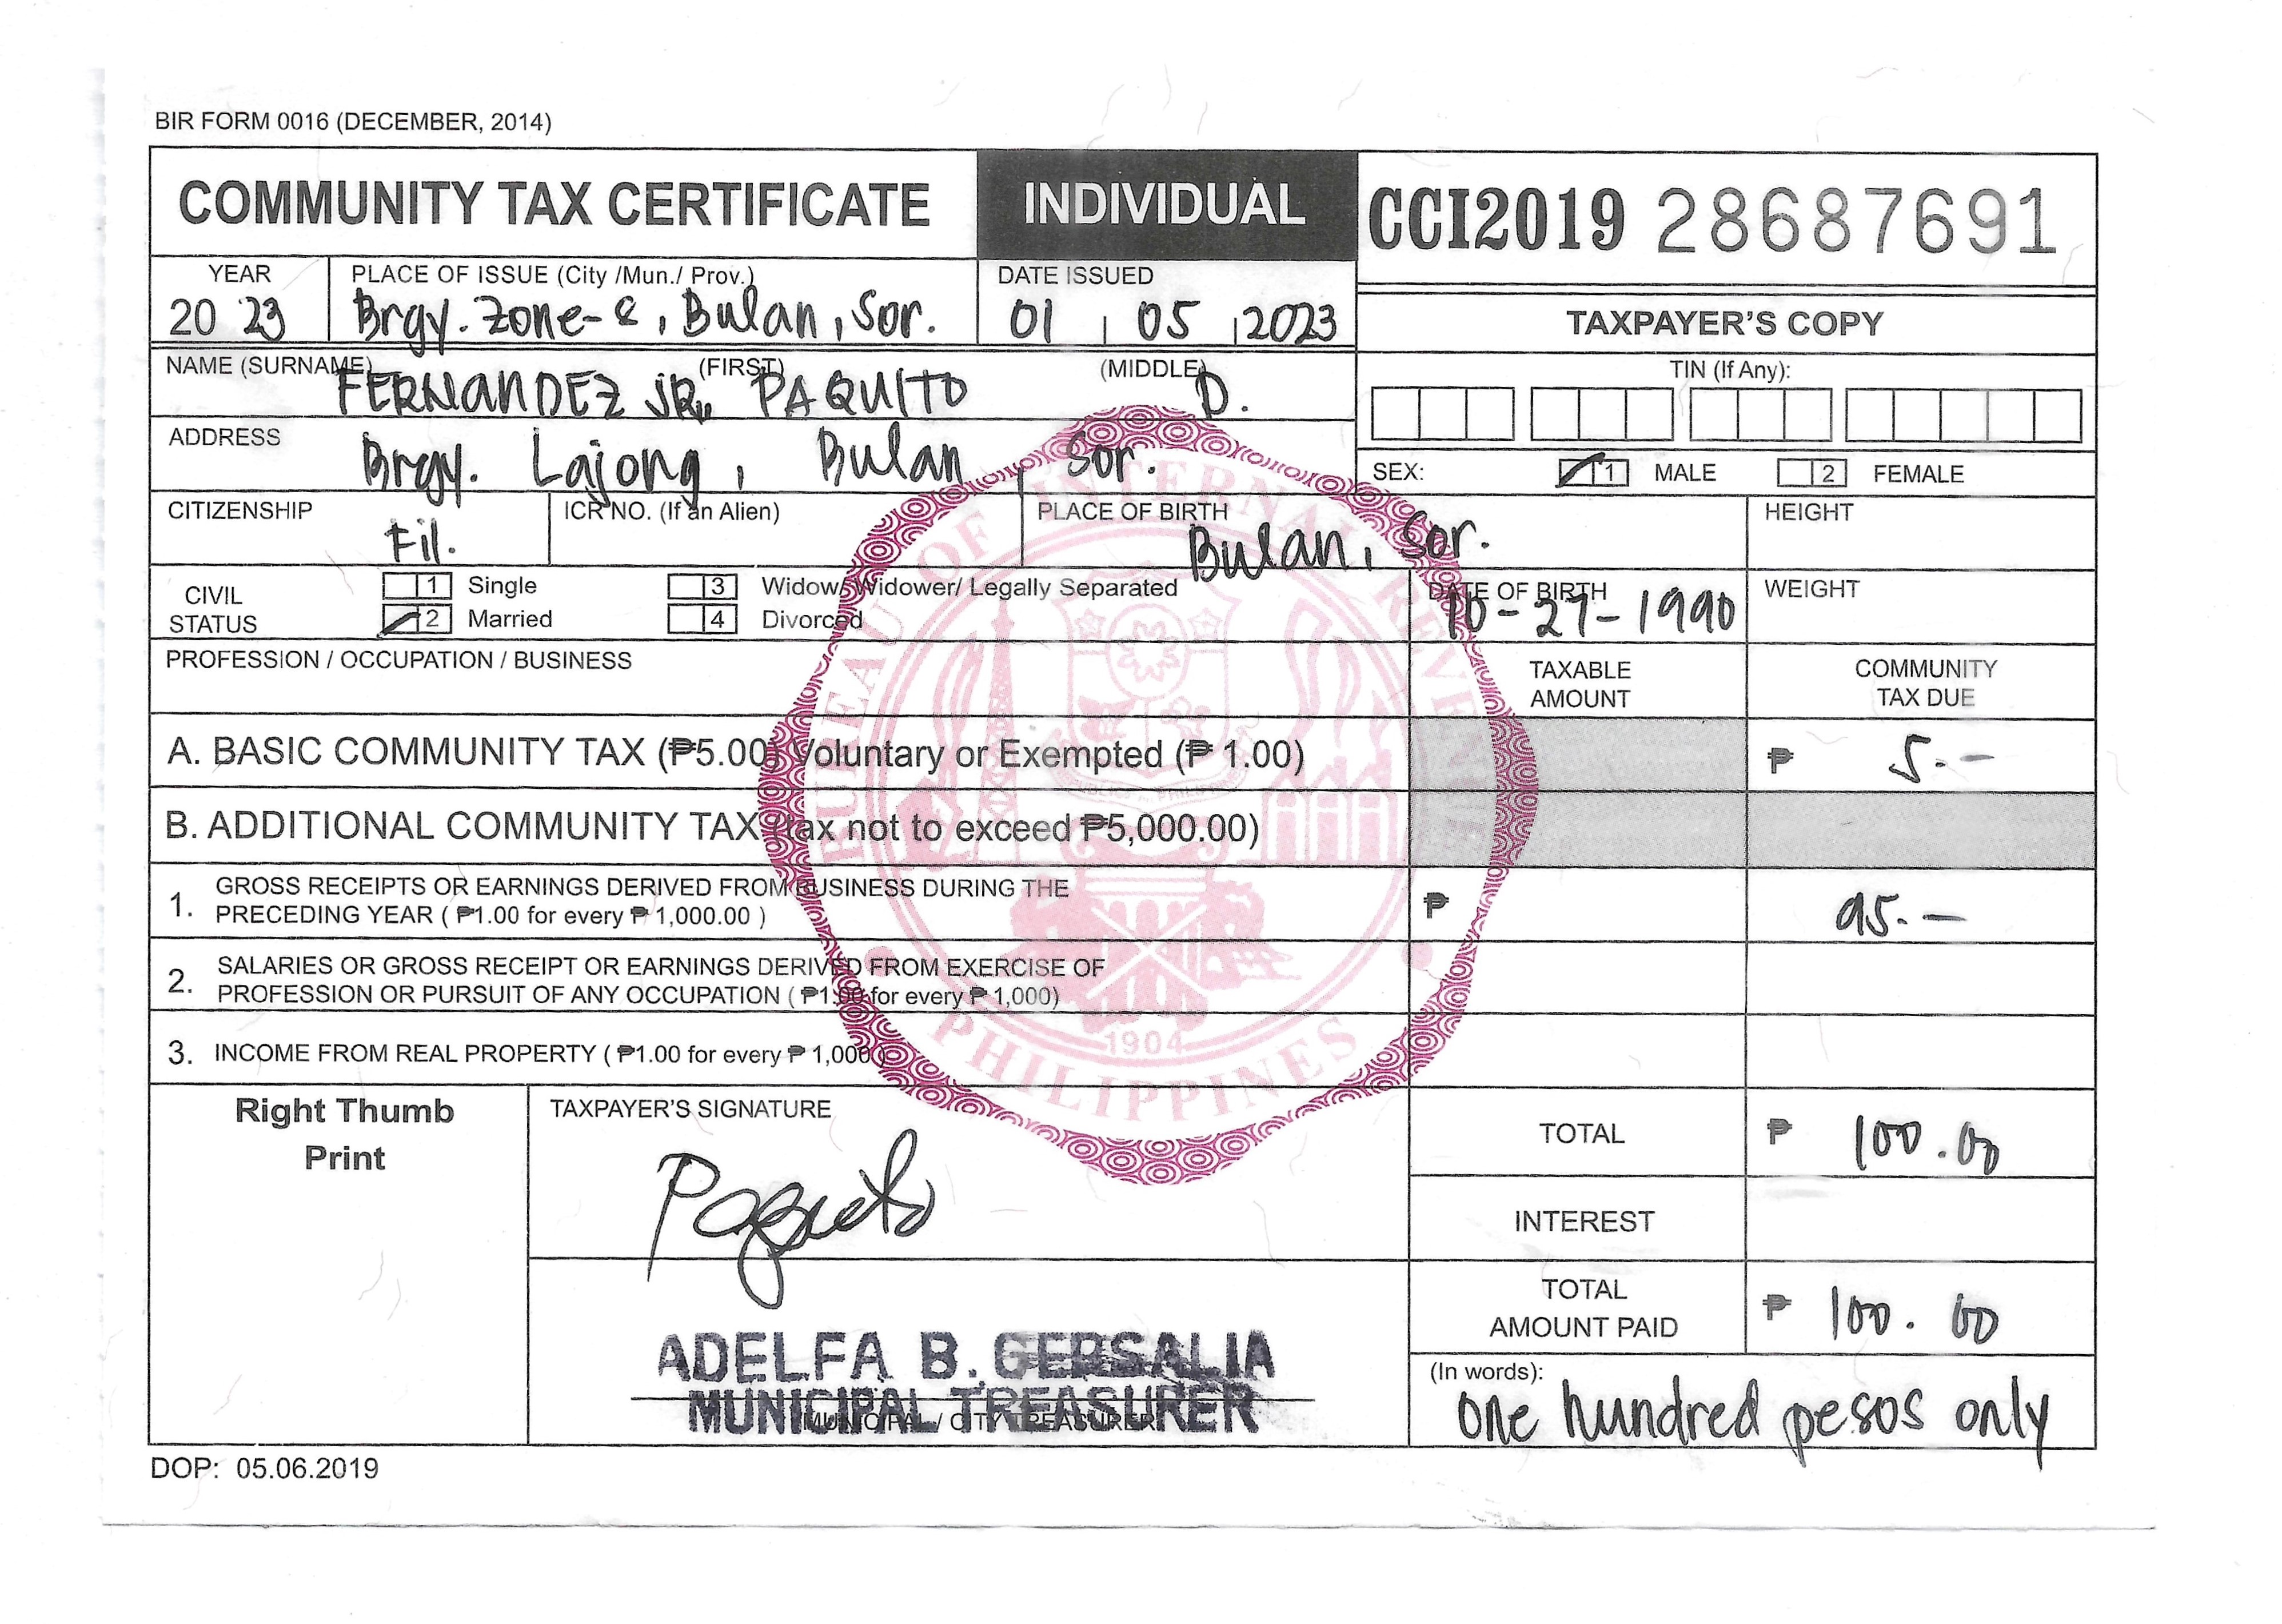 BIR FORM 0016 (DECEMBER, 2014)
COMMUNITY TAX CERTIFICATE
INDIVIDUAL
CCI2019 28687691
YEAR
20 23
PLACE OF ISSUE (City /Mun./ Prov.)
Brgy. Zone-8, Bulan, Sor.
DATE ISSUED
01 05 2023
TAXPAYER'S COPY
NAME (SURNAME) (FIRST) (MIDDLE)
FERNANDEZ JR., PAQUITO D.
TIN (If Any):
ADDRESS
Brgy. Lajong, Bulan, Sor.
SEX: 1 MALE 2 FEMALE
CITIZENSHIP
Fil.
ICR NO. (If an Alien)
PLACE OF BIRTH
Bulan, Sor.
HEIGHT
CIVIL STATUS
1 Single
2 Married
3 Widow/Widower/ Legally Separated
4 Divorced
DATE OF BIRTH
10-27-1990
WEIGHT
PROFESSION / OCCUPATION / BUSINESS
TAXABLE AMOUNT
COMMUNITY TAX DUE
A. BASIC COMMUNITY TAX (₱5.00) Voluntary or Exempted (₱ 1.00)
₱ 5.-
B. ADDITIONAL COMMUNITY TAX (tax not to exceed ₱5,000.00)
1. GROSS RECEIPTS OR EARNINGS DERIVED FROM BUSINESS DURING THE
PRECEDING YEAR ( ₱1.00 for every ₱ 1,000.00 )
₱ 95.-
2. SALARIES OR GROSS RECEIPT OR EARNINGS DERIVED FROM EXERCISE OF
PROFESSION OR PURSUIT OF ANY OCCUPATION ( ₱1.00 for every ₱ 1,000)
3. INCOME FROM REAL PROPERTY ( ₱1.00 for every ₱ 1,000)
BUREAU OF INTERNAL REVENUE
1904
PHILIPPINES
Right Thumb
Print
TAXPAYER'S SIGNATURE
Paquito
TOTAL ₱ 100.00
INTEREST
TOTAL
AMOUNT PAID ₱ 100.00
ADELFA B. GERSALIA
MUNICIPAL TREASURER
MUNICIPAL / CITY TREASURER
(In words):
One hundred pesos only
DOP: 05.06.2019